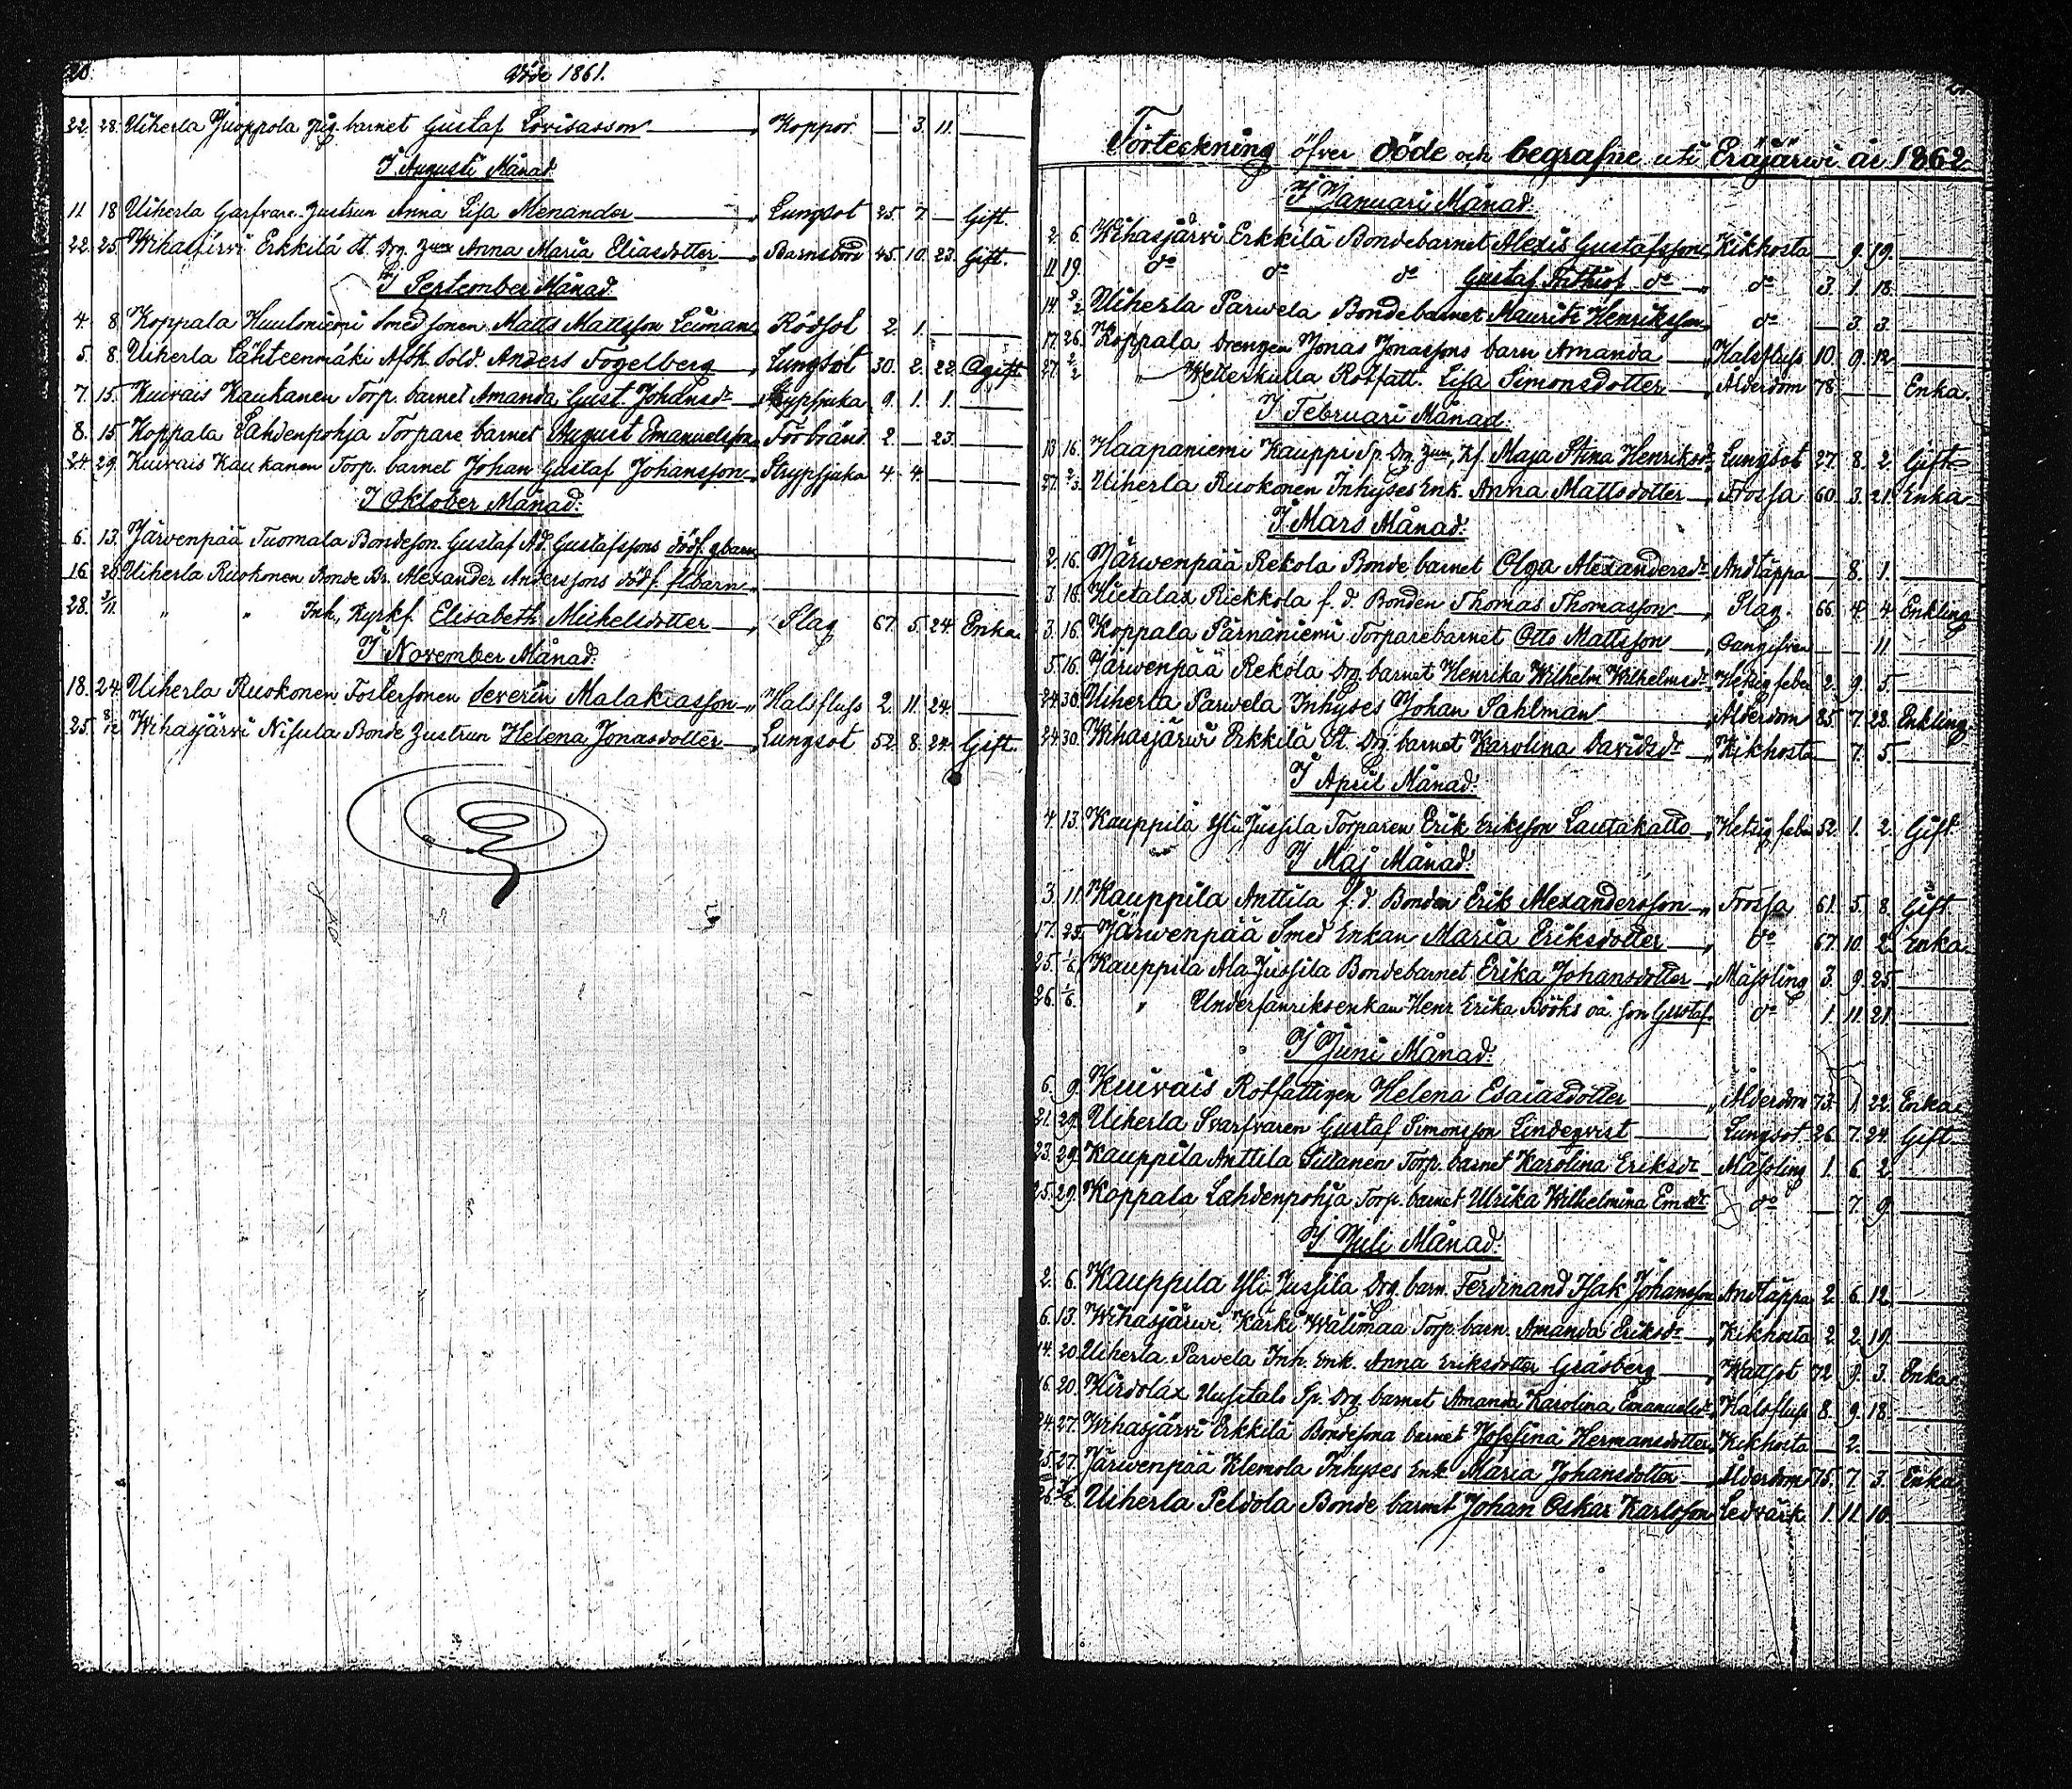 20.
Döde 1861.
22. 28. Uiherla Juoppola pig. barnet Gustaf Lovisasson Koppor. 3. 11.
I Augusti Månad.
11. 18 Uiherla Garfvare hustrun Anna Lisa Menander Lungsot 25. 7. Gift.
22. 25. Wihasjärvi Erkkilä St. Drg. Anna Maria Eliasdotter Barnsbörd 45. 10. 23. Gift.
I September Månad.
4. 8. Koppala Huuloniemi Smedsonen Matts Mattsson Leiman Rödsot 2. 1.
5. 8. Uiherla Lähteenmäki Afsk. Sold. Anders Fogelberg Lungsot 30. 2. 22. Ogift
7. 15. Kuivais Kaukanen Torp. barnet Amanda Gust. Johansdr Strypsjuka 9. 1. 1.
8. 15. Koppala Lahdenpohja Torpare barnet August Emanuelsson Förbränd 2. 23.
24. 29. Kuivais Kaukanen Torp. barnet Johan Gustaf Johansson Strypsjuka 4. 4.
I Oktober Månad.
6. 13. Järvenpää Tuomala Bondeson. Gustaf Ad. Gustafssons dödf. gbarn
16. 20. Uiherla Ruokonen Bonde Br. Alexander Anderssons dödf. flbarn
28. 3/11 " " Inh. Kyrkf. Elisabeth Mickelsdotter Slag 67. 5. 24. Enka.
I November Månad.
18. 24. Uiherla Ruokonen Fostersonen Severin Malakiasson Halsfluss 2. 11. 24.
25. 8/12 Wihasjärvi Nisula Bonde hustrun Helena Jonasdotter Lungsot 52. 8. 24. Gift.
Förteckning öfver döde och begrafne uti Eräjärwi år 1862
I Januari Månad.
2. 6. Wihasjärvi Erkkilä Bondebarnet Alexis Gustafsson Kikhosta 9. 19.
11. 19. do do do Gustaf Frithiof do do 3. 1. 18.
14. 2/2 Uiherla Parwela Bondebarnet Mauritz Henriksson do 3. 3.
17. 26. Koppala drengen Jonas Jonassons barn Amanda Halsfluss 10. 9. 12.
27. 2/2 " Wetterkulla Rotfatt. Lisa Simonsdotter Ålderdom 78. Enka.
I Februari Månad.
13 16. Haapaniemi Kauppi Sp. Drg. Maja Stina Henriksdr Lungsot 27. 8. 2. Gift
27. 2/3 Uiherla Ruokonen Inhyses Enk. Anna Mattsdotter Frossa 60. 3. 21. Enka
I Mars Månad.
2. 16. Järwenpää Rekola Bonde barnet Olga Alexandersdr Andtäppa 8. 1.
3. 16. Hietalax Riekkola f. d. Bonden Thomas Thomasson Slag. 66. 4. 4. Enkling
3. 16. Koppala Pärnäniemi Torparebarnet Otto Mattsson 11.
5. 16. Järwenpää Rekola Drg barnet Henrika Wilhelm Wilhelmsdr Hetsig feber 2. 9. 5.
24. 30. Uiherla Parwela Inhyses Johan Sahlman Ålderdom 85. 7. 28. Enkling
24. 30. Wihasjärwi Erkkilä St. Drg barnet Karolina Davidsdr Kikhosta 7. 5.
I April Månad.
4. 13. Kauppila Yli Jussila Torparen Erik Eriksson Lautakatto Hetsig feber 52. 1. 2. Gift
I Maj Månad.
3. 11. Kauppila Anttila f. d. Bonden Erik Alexandersson Frossa 61. 5. 8. Gift
17. 25. Järwenpää Smed Enkan Maria Eriksdotter do 67. 10. 2. Enka
25. 1/6 Kauppila Ala Jussila Bondebarnet Erika Johansdotter Mässling 3. 9. 25.
26. 1/6. " Underfänriksenkan Henr. Erika Bööks oä. son Gustaf do 1. 11. 21
I Juni Månad.
6. 9. Kuivais Rotfattigen Helena Esaiasdotter Ålderdom 73. 1. 22. Enka
21. 29. Uiherla Svarfvaren Gustaf Simonsson Lindeqvist Lungsot 26. 7. 24. Gift
23. 29. Kauppila Anttila Sillanen Torp. barnet Karolina Eriksdr Mässling 1. 6. 2
25. 29. Koppala Lahdenpohja Torp. barnet Ulrika Wilhelmina Emdr do 7. 9.
I Juli Månad.
2. 6. Kauppila Yli-Jussila Drg. barn. Ferdinand Isak Johansson Andtäppa 2. 6. 12.
6. 13. Wihasjärwi Kärki Wälimaa Torp. barn. Amanda Eriksdr Kikhosta 2. 2. 19.
14. 20. Uiherla Parvela Inh. Enk. Anna Eriksdotter Gräsberg Wattsot 72. 9. 3. Enka
16. 20. Hirdolax Uusitalo Sp. Drg barnet Amanda Karolina Emanuelsdr Halsfluss 8. 9. 18.
24. 27. Wihasjärvi Erkkilä Bondesona barnet Josefina Hermansdotter Kikhosta 2.
25. 27. Järwenpää Klemola Inhyses Enk. Maria Johansdotter Ålderdom 75. 7. 3. Enka
26. 3/8. Uiherla Peldola Bonde barnet Johan Oskar Karlsson Ledvärk 1. 11. 10.